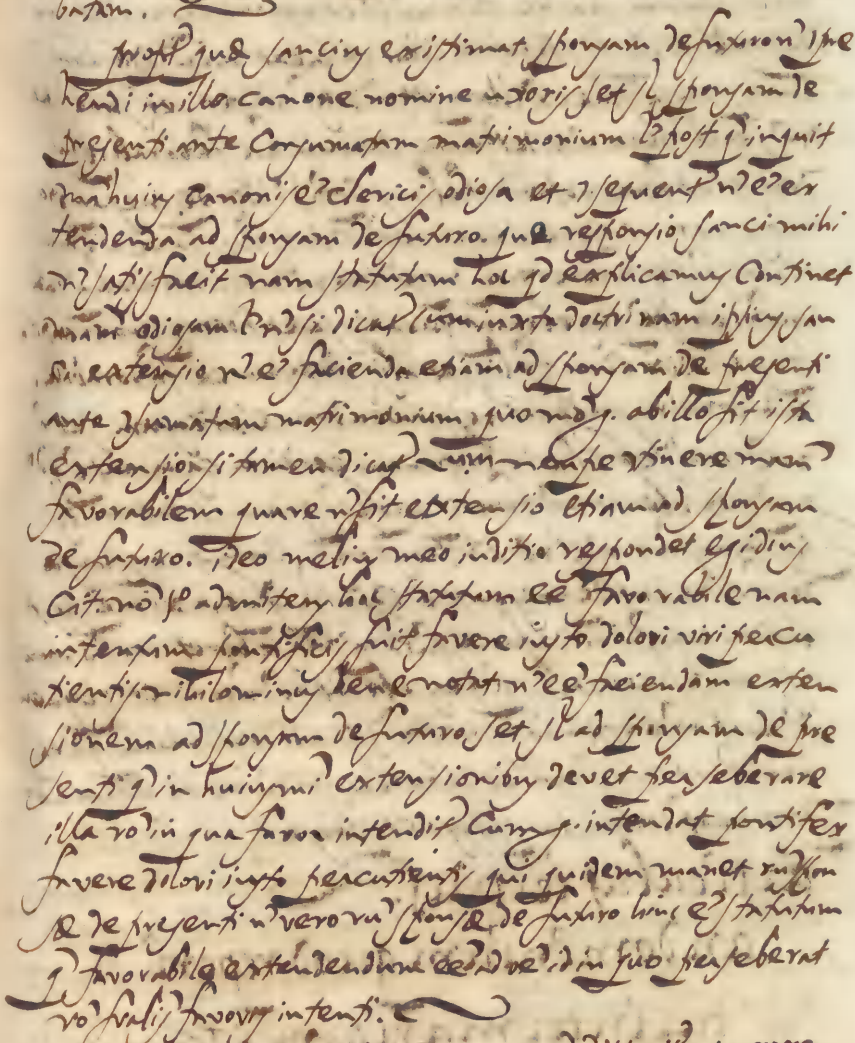 batam.
propt' quæ sancius existimat sponsam de futuro n' cpre
hendi in illo canone nomine uxoris set sl' sponsam de
presenti ante Consumatum matrimonium post q' inquit
mā huius Canonis e' clericis odiosa et sequent' n' e' ex
tendenda ad sponsam de futuro. que responsio sanci mihi
n' satisfacit nam statutum hoc qd explicamus Continet
mam' odiosam n' si dicat' Cum iuxta doctrinam ipsius san
ci extensio n' e' facienda etiam ad sponsam de presenti
ante matrimonium quo mō g. ab illo fit ista
extensio si tamen dicat' nempe tinere mam'
favorabilem quare n' fit extensio etiam ad sponsam
de futuro. ideo melius meo iuditio respondet egidius
Cit. nō admitens hoc statutum ee favorabile nam
intentum pontificis fuit favere iusto dolori viri percu
tientis nihilominus bene notat n' ee' faciendam exten
sionem ad sponsam de futuro set sl' ad sponsam de pre
senti q' in huiusmi' extensionibus devet perseberare
illa ro' in qua favor intendit' Cum g. intendat pontifex
favere dolori iusto percutientis qui quidem manet rū spon
sæ de presenti n' vero rū sponsæ de futuro hinc e' statutum
q' favorabile extendendum ee' ad id in quo perseberat
ro' fralis favoris intenti.